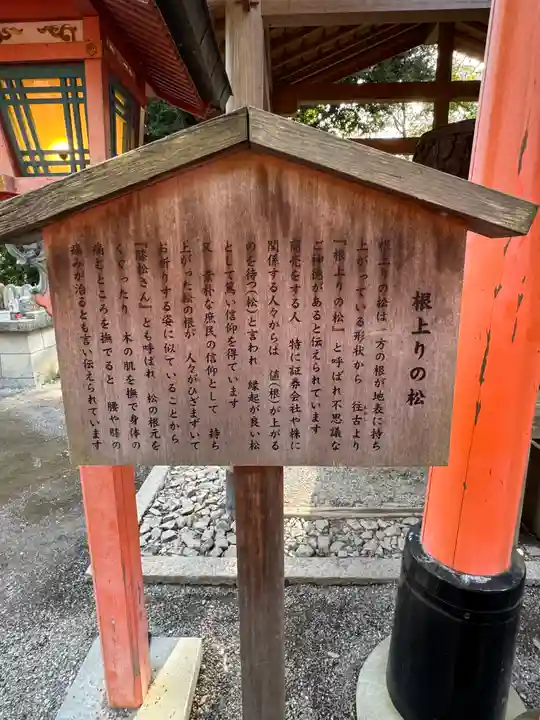 根上りの松
根上りの松は一方の根が地表に持ち
上がっている形状から　往古より
『根上りの松』と呼ばれ不思議な
ご神徳があると伝えられています
商売をする人　特に証券会社や株に
関係する人々からは　値(根)が上がる
のを待つ(松)と言われ　縁起が良い松
として篤い信仰を得ています
又　素朴な庶民の信仰として　持ち
上がった松の根が　人々がひざまずいて
お祈りする姿に似ていることから
『膝松さん』とも呼ばれ　松の根元を
くぐったり　木の肌を撫で身体の
痛むところを撫でると　腰や膝の
痛みが治るとも言い伝えられています